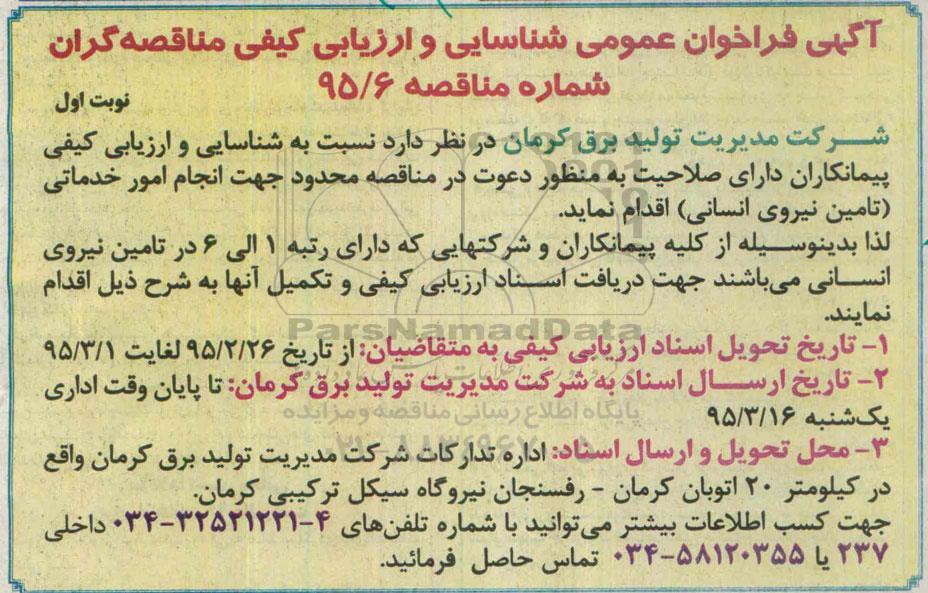 آگهی فراخوان عمومی شناسایی و ارزیابی کیفی مناقصه‌گران
شماره مناقصه ۹۵/۶
نوبت اول
شــرکت مدیریت تولید برق کرمان در نظر دارد نسبت به شناسایی و ارزیابی کیفی
پیمانکاران دارای صلاحیت به منظور دعوت در مناقصه محدود جهت انجام امور خدماتی
(تامین نیروی انسانی) اقدام نماید.
لذا بدینوسـیله از کلیه پیمانکاران و شرکتهایی که دارای رتبه ۱ الی ۶ در تامین نیروی
انسـانی می‌باشند جهت دریافت اسـناد ارزیابی کیفی و تکمیل آنها به شرح ذیل اقدام
نمایند.
ParsNamadData
۱- تاریخ تحویل اسناد ارزیابی کیفی به متقاضیان: از تاریخ ۹۵/۲/۲۶ لغایت ۹۵/۳/۱
۲- تاریخ ارســال اسناد به شرکت مدیریت تولید برق کرمان: تا پایان وقت اداری
یک‌شنبه ۹۵/۳/۱۶
پایگاه اطلاع رسانی مناقصه و مزایده
۳- محل تحویل و ارسال اسناد: اداره تدارکات شرکت مدیریت تولید برق کرمان واقع
در کیلومتر ۲۰ اتوبان کرمان - رفسنجان نیروگاه سیکل ترکیبی کرمان.
جهت کسب اطلاعات بیشتر می‌توانید با شماره تلفن‌های ۴-۳۲۵۲۱۲۲۱-۰۳۴ داخلی
۲۳۷ یا ۵۸۱۲۰۳۵۵-۰۳۴ تماس حاصل فرمائید.